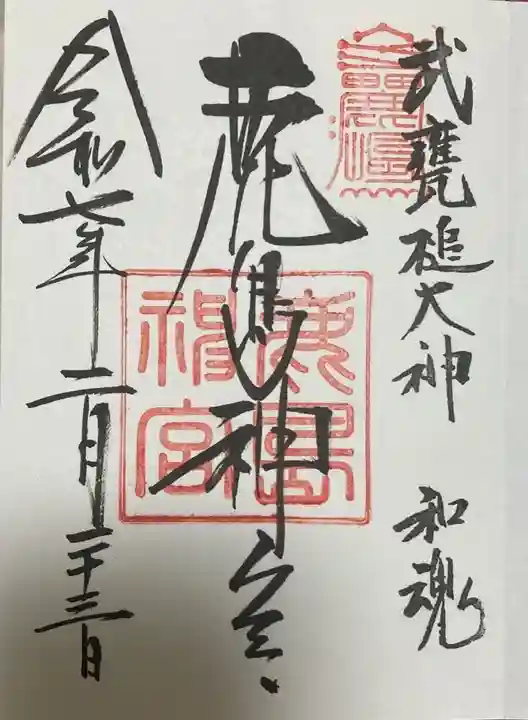 武甕槌大神 和魂
鹿島神宮
鹿島
神宮
令和七年二月二十三日